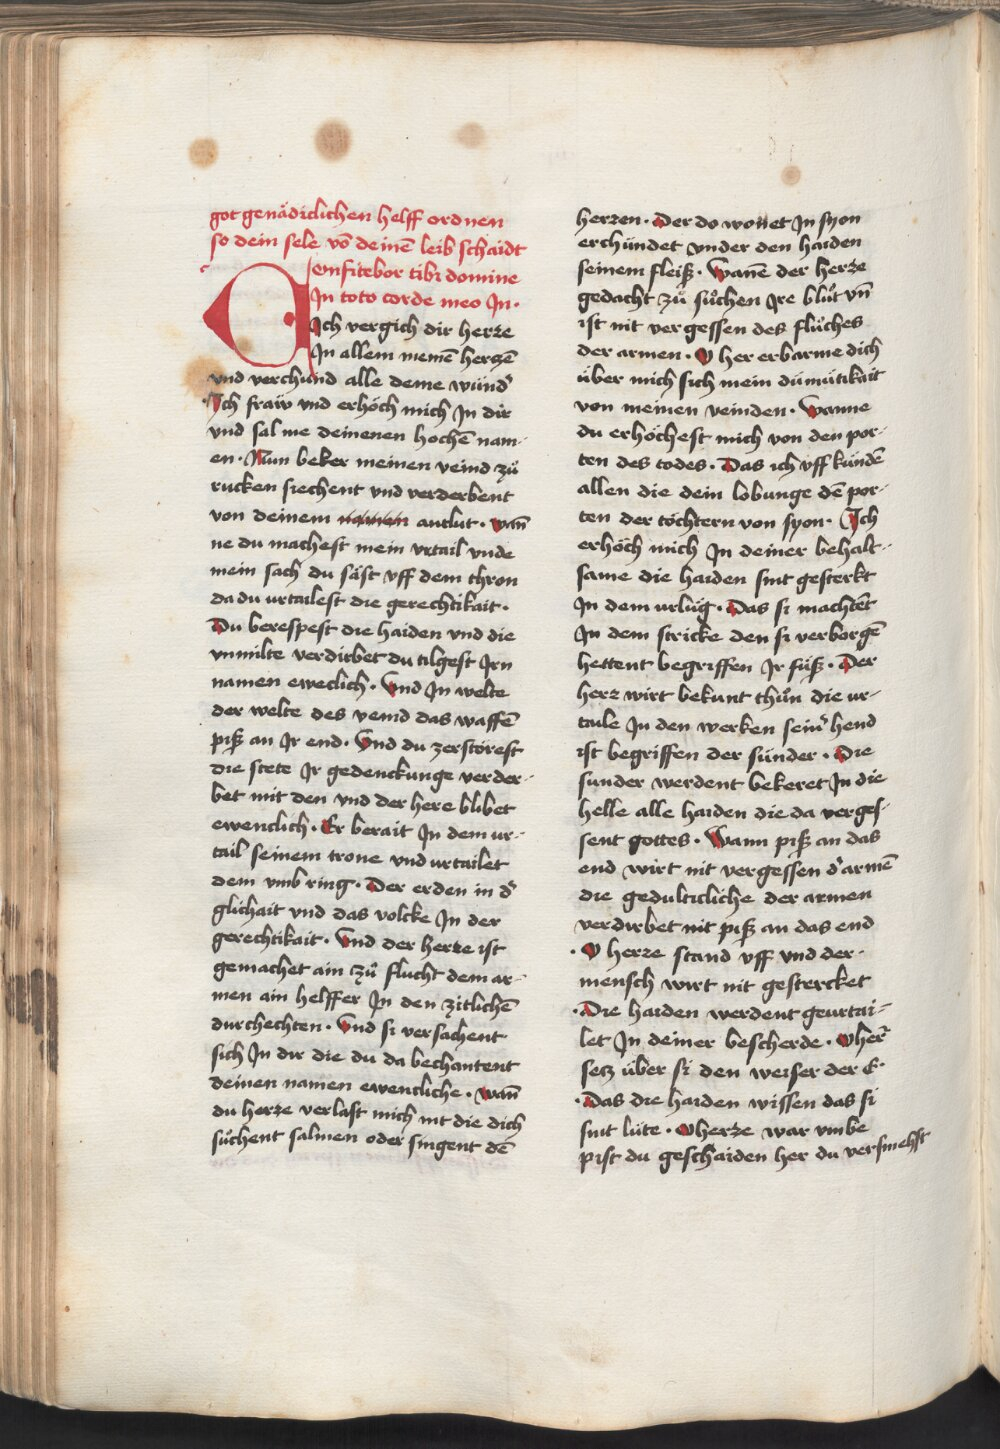 got genädiclichen helff ordnen
so dein sele vō deinē leib schaidt
Confitebor tibi domine
In toto corde meo In·
Ich vergich dir herze
In allem meinē herzē
vnd verchund alle deine wundˀ
Ich fräw vnd erhöch mich In dir
vnd sal me deinenen hochē nam-
en· Nun beker meinen veind zů
rucken siechent vnd verderbent
von deinem namen antlut· wan̄
ne du machest mein vrtail vnde
mein sach du säst vff dem thron
da du urtailest die gerechtikait·
Du berespest die haiden vnd die
vnmilte verdirbet du tilgest Irn
namen eweclich· Vnd In welte
der welte des veind das waffē
piß an Ir end· Vnd du zerstörest
die stete Ir gedenckunge verder-
bet mit den vnd der here blibet
ewenclich· Er berait In dem ur-
tail seinem trone vnd urtailet
dem vmb ring· Der erden in dˀ
glichait vnd das volcke In der
gerechtikait· Vnd der herze ist
gemachet ain zů flucht dem ar-
men ain helffer In den zitlichē
durchechten· Vnd si versachent
sich In dir die du da bechantent
deinen namen ewencliche· wan̄
du herze verlast mich nit die dich
sůchent salmen oder singent dē
herzen· Der do wonet In syon
erchündet vnder den haiden
seinem fleiß· Wanē der herze
gedacht zů sůchen Ire blůt vn̄
ist nit vergessen des flůches
der armen· O her erbarme dich
über mich sich mein dümütikait
von meinen veinden· Wanne
du erhöchest mich von den por-
ten des todes· Das ich vff kündē
allen die dein lobunge dē por-
ten der töchtern von syon· Ich
erhöch mich In deiner behalt-
same die haiden sint gesterkt
In dem urlüg· Das si machtēt
In dem stricke den si verborgē
hettent begriffen Ir füß· Der
herz wirt bekunt thůn die ur-
taile In den werken seinˀ hend
ist begriffen der sünder· Die
sunder werdent bekeret In die
helle alle haiden die da verges-
sent gottes· Wann piß an das
end wirt nit vergessen dˀ armē
die gedulticliche der armen
verdirbet nit piß an das end
· O herze stand vff vnd der·
mensch wirt nit gestercket
· Die haiden werdent geurtai-
let In deiner bescherde· O herˀ
secz über si den weiser der E·
· Das die haiden wissen das si
sint lüte· O herze war vmbe
pist du geschaiden her du versmehst